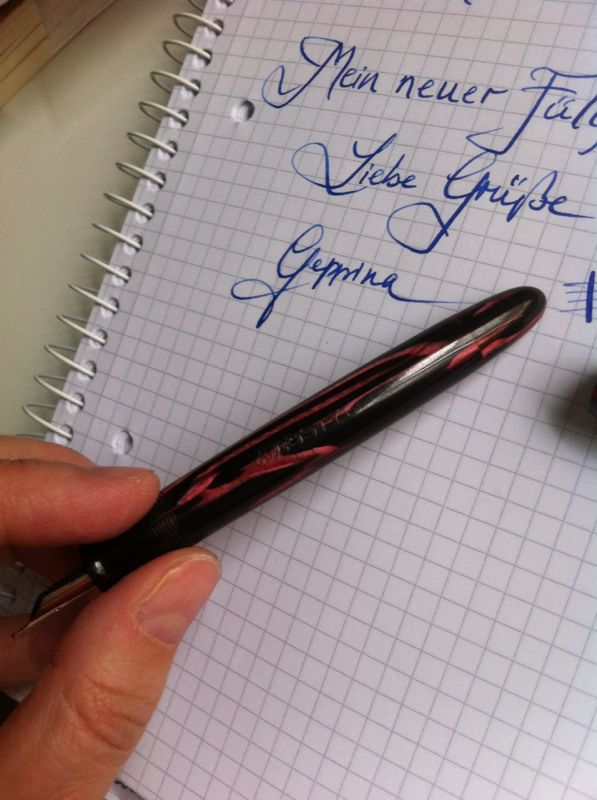 Mein neuer
Liebe Grüße
Geppina